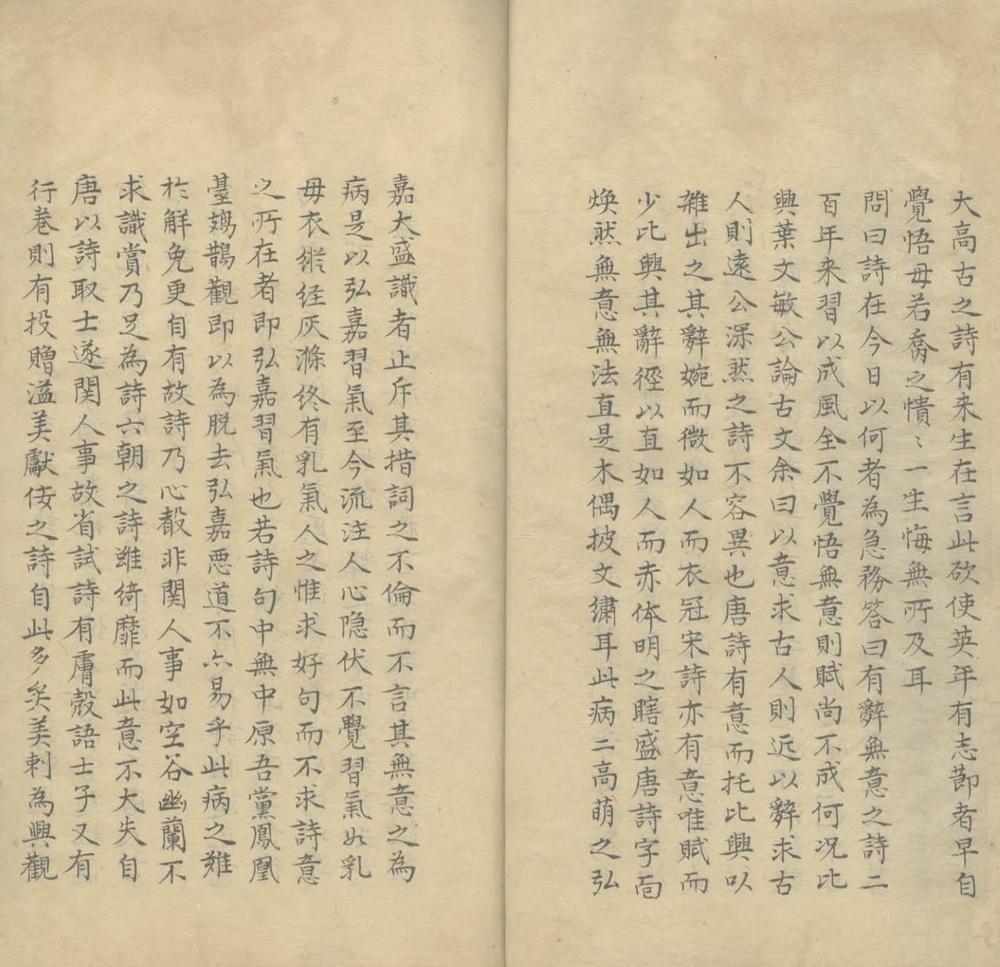 大高古之詩有来生在言此欲使英年有志節者早自
覺悟毋若喬之憒〻一生悔無所及耳
問曰詩在今日以何者為急務答曰有辭無意之詩二
百年来習以成風全不覺悟無意則賦尚不成何况比
興葉文敏公論古文余曰以意求古人則近以辭求古
人則遠公深然之詩不容異也唐詩有意而托比興以
雜出之其辭婉而微如人而衣冠宋詩亦有意唯賦而
少比興其辭徑以直如人而赤体明之瞎盛唐詩字面
煥然無意無法直是木偶披文繡耳此病二高萌之弘
嘉大盛識者止斥其措詞之不倫而不言其無意之為
病是以弘嘉習氣至今流注人心隐伏不覺習氣如乳
母衣縱経灰滌终有乳氣人之惟求好句而不求詩意
之所在者即弘嘉習氣也若詩句中無中原吾黨鳳凰
臺鳷鵲觀即以為脱去弘嘉惡道不亦易乎此病之難
於解免更自有故詩乃心聲非関人事如空谷幽蘭不
求識賞乃足為詩六朝之詩雖綺靡而此意不大失自
唐以詩取士遂関人事故省試詩有膚殼語士子又有
行卷則有投贈溢美獻佞之詩自此多矣美刺為興觀